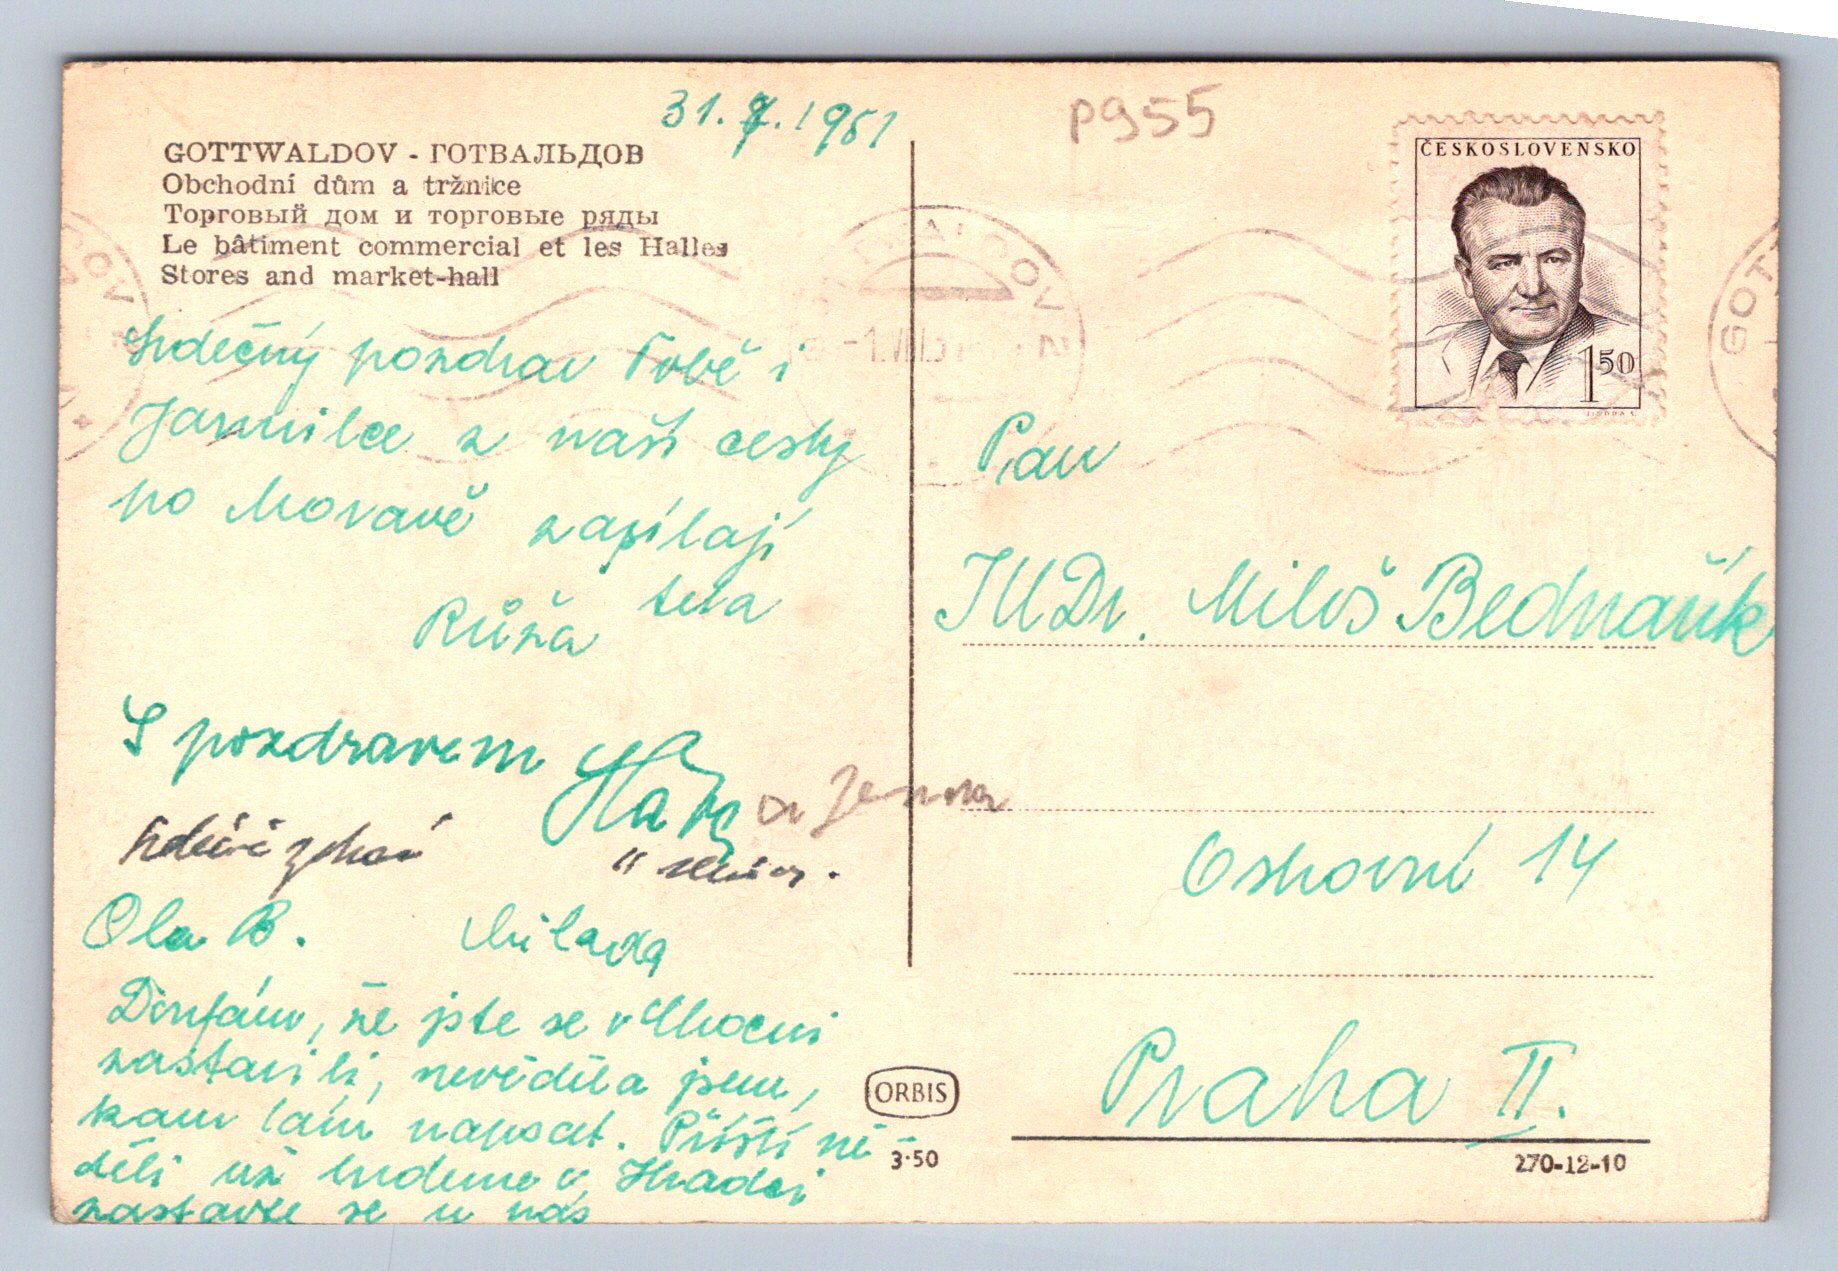 31. 7. 1951
P955
GOTTWALDOV - ГОТВАЛЬДОВ
Obchodní dům a tržnice
Торговый дом и торговые ряды
Le bâtiment commercial et les Halles
Stores and market-hall
ČESKOSLOVENSKO
1 50
Srdečný pozdrav Tobě i
Jarmilce z naší cesty
po Moravě zasílají
teta
Růža
S pozdravem
senior.
Ola B. Milada
Doufám, že jste se v Chocni
zastavili, nevěděla jsem,
kam Vám napsat. Příští ně-
děli už budeme v Hradci
zastavte se u nás
Pan
JUDr. Miloš Bednařík
Ostrovní 14
Praha II.
ORBIS
3·50
270-12-10